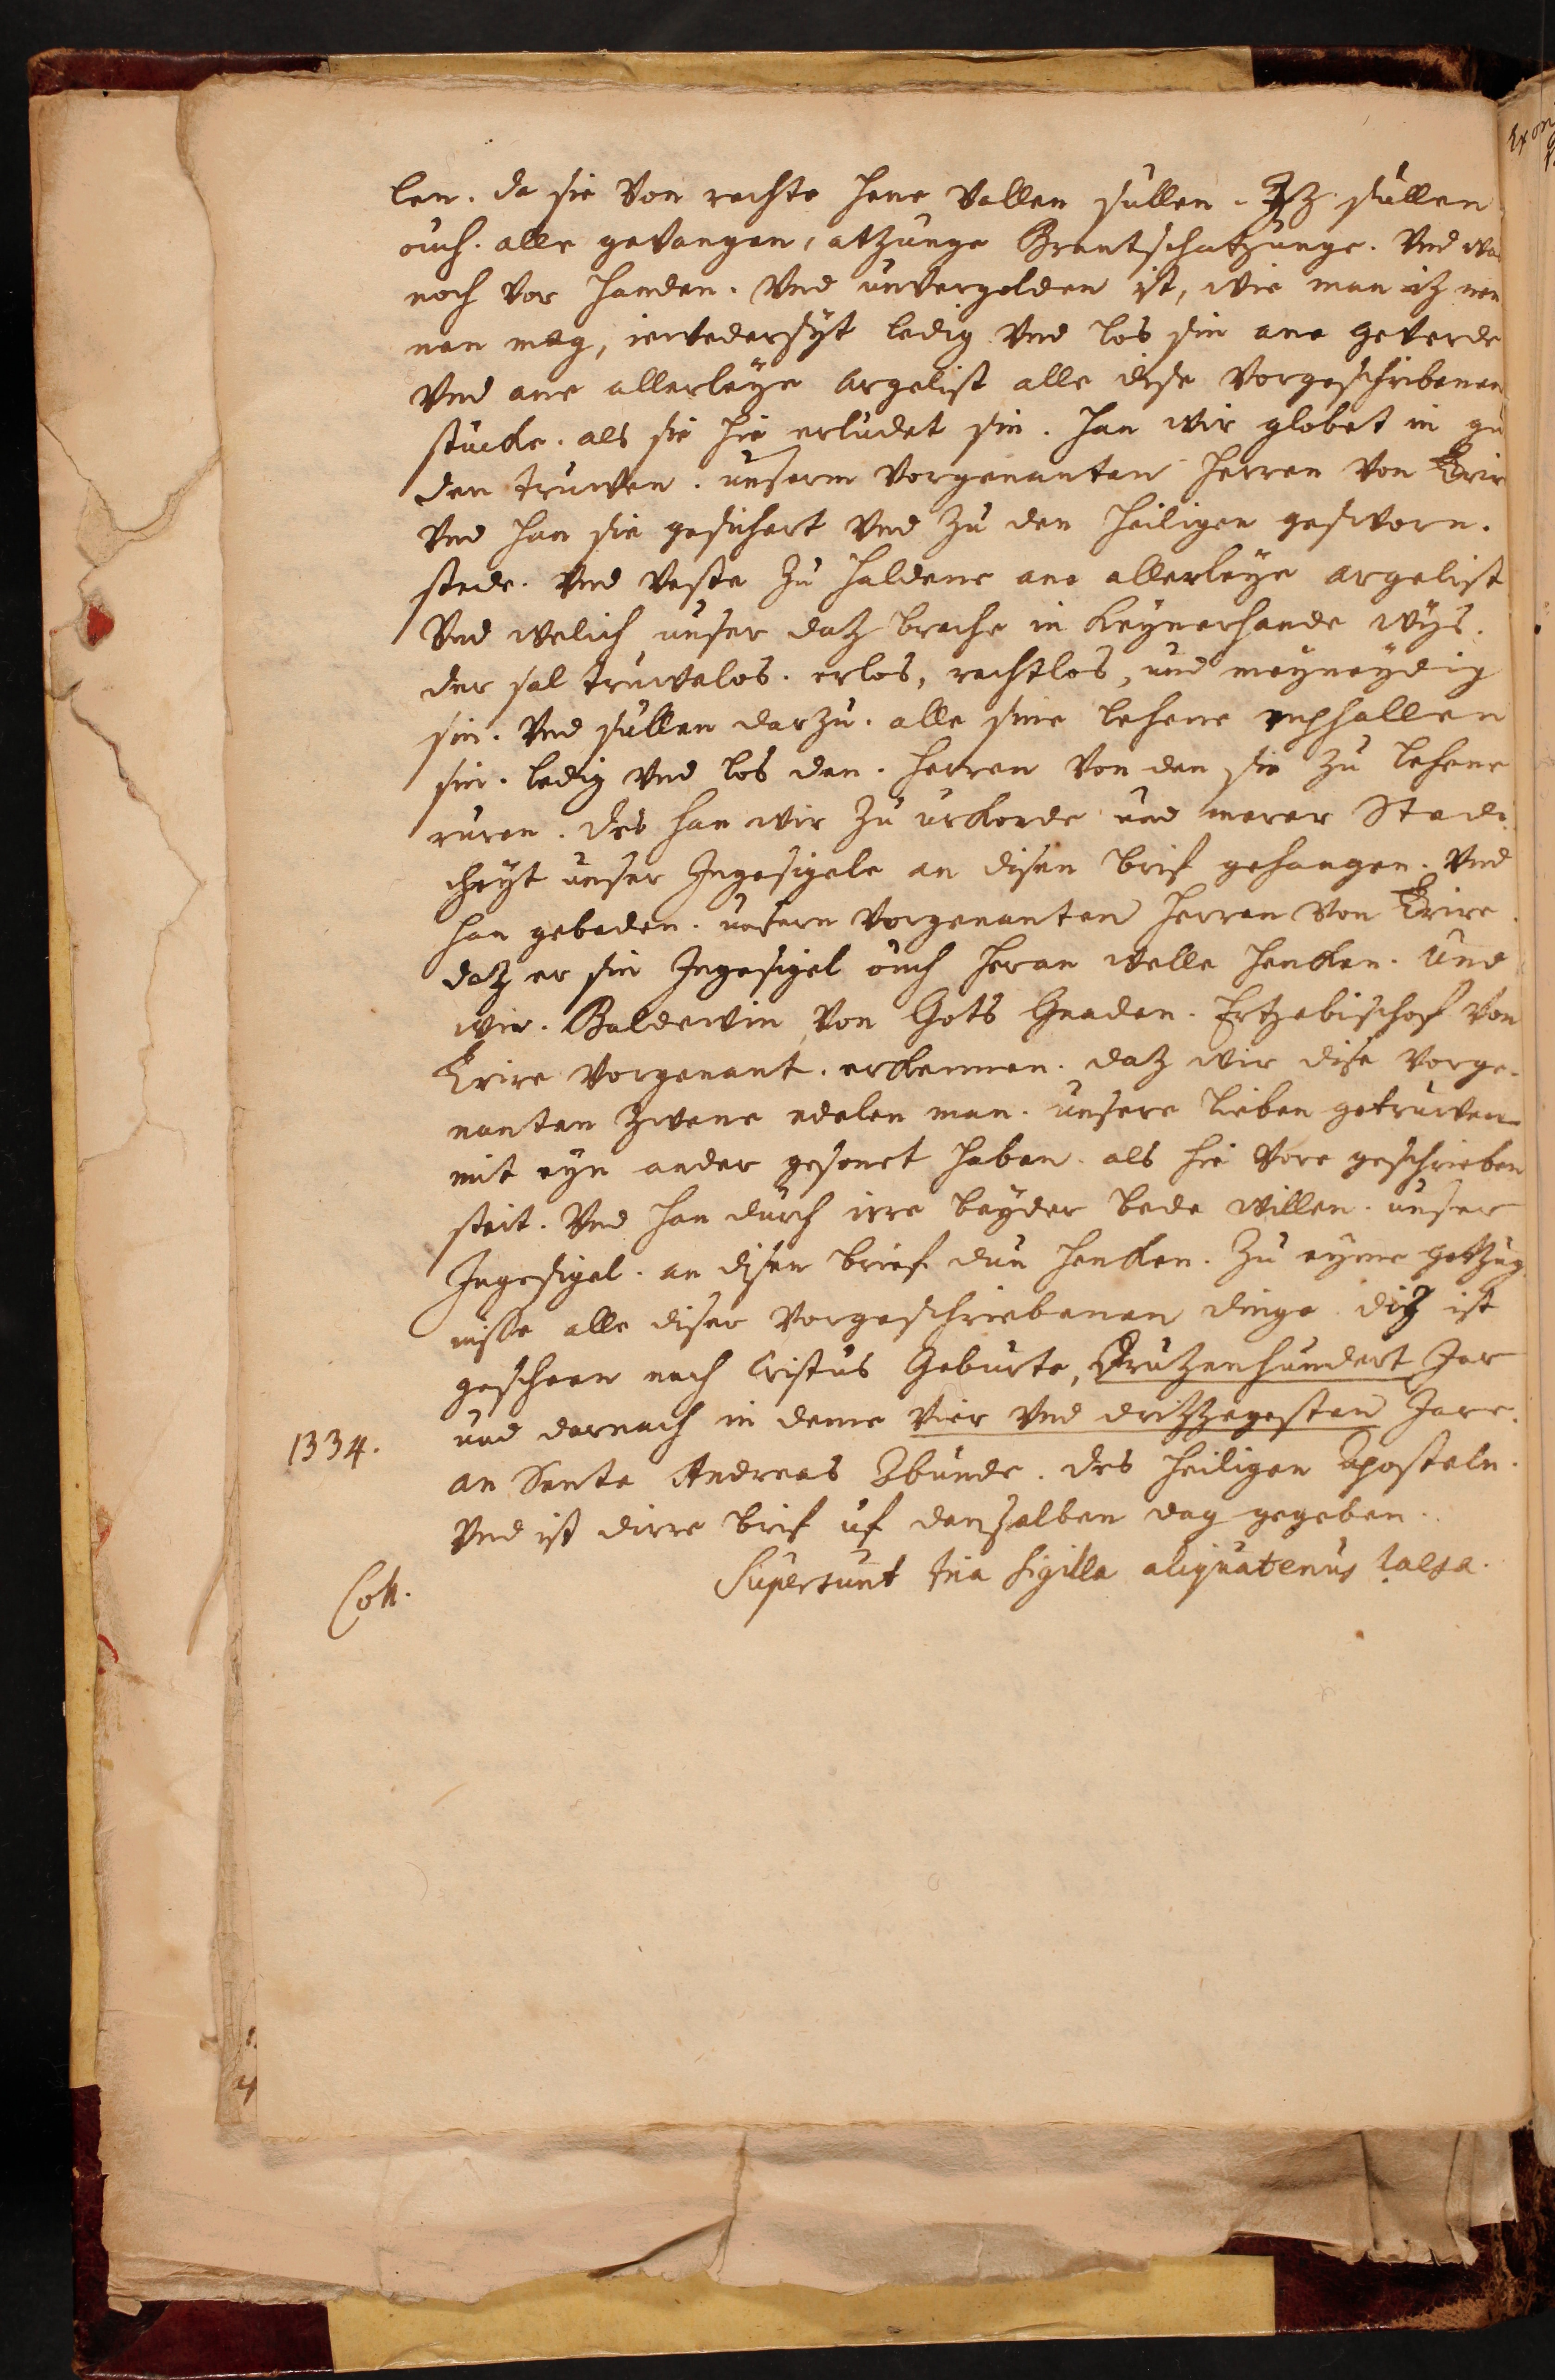 len. da sie von rechte hene vallen sullen. Iz sullen
ouch. alle gevangen, atzunge Brantschatzunge. Vnd wa
noch vor handen. Vnd unvergolden ist, wie man iz nen
nen mag, ievedersyt ledig Vnd los sin ane geverde
Vnd ane allerleye Argelist alle dise vorgeschribenen
stucke. als sie hie erludet sin. han wir globet in gu
den truwen. unserm vorgenanten herren von Trire
Vnd han sie gesichert Vnd zu den heiligen gesworn.
stede. Vnd veste zu haldene ane allerleye argelist
Vnd welich unser daz breche in keynerhande wys.
der sal truwelos. erlos, rechtlos, und meyneydig
sin. Vnd sullen darzu. alle sine lehene vephallen
sin. ledig Vnd los den. herren von den sie zu lehene
ruren. des han wir zu urkonde und merer Stedi
cheyt unser Ingesigele an disen brif gehangen. Vnd
han gebeden. unsern vorgenanten herren von Trire.
daz er sin Ingesigel ouch heran welle henken. Und
wir. Baldewin, von Gots Gnaden. Ertzebischof von
Trire vorgenant. erkennen. daz wir dise vorge-
nanten zwene edelen man. unsere lieben getruwen
mit eyn ander gesonet haben. als hie vore geschrieben
steit. Vnd han durch irre beyder bede willen. unser
Ingesigel. an disen brief dun henken. zu eyme getzug
nisse alle diser vorgeschriebenen dinge diz ist
gescheen nach Cristus Geburte, Druzenhundert Jar
1334. und darnach in deme vier Vnd drizzegesten Jare.
an Sente Andreas Abunde. des heiligen Aposteln.
Vnd ist dirre brif uf denselben dag gegeben.
Coll. Supersunt tria sigilla aliquatenus laesa.
Ex ori